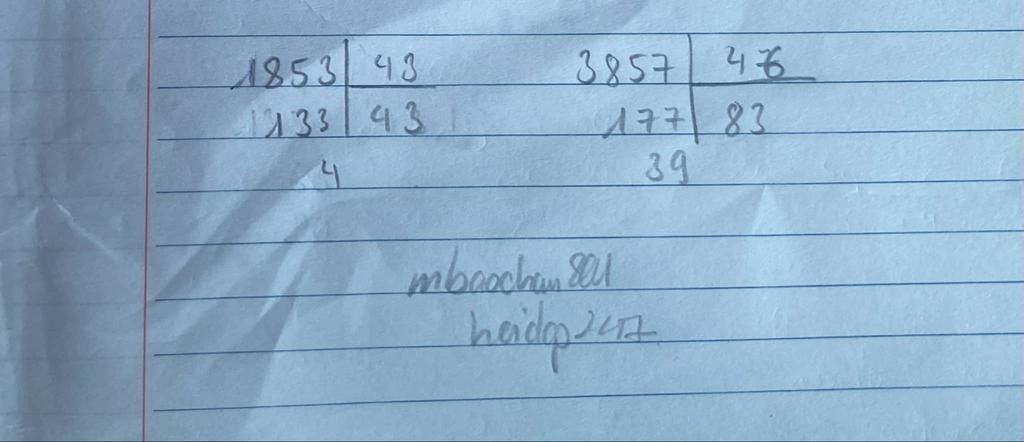 1853 43 3857 46
133 43 177 83
4 39
mbaochau801